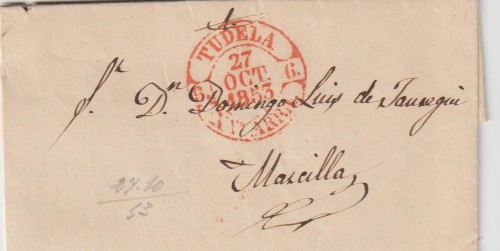 TUDELA
27
OCT.
1853
6. 6.
NAVARRA
Sr. Dn. Domingo Luis de Jauregui
Marcilla
27.10
53